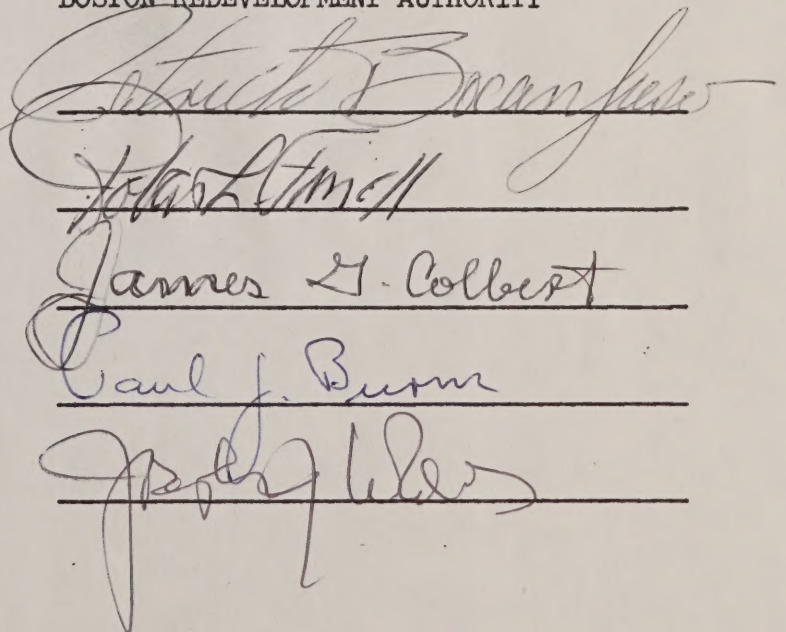 BOSTON REDEVELOPMENT AUTHORITY
Patrick Bocanfuso
James G. Colbert
Paul J. Burns
Joseph J